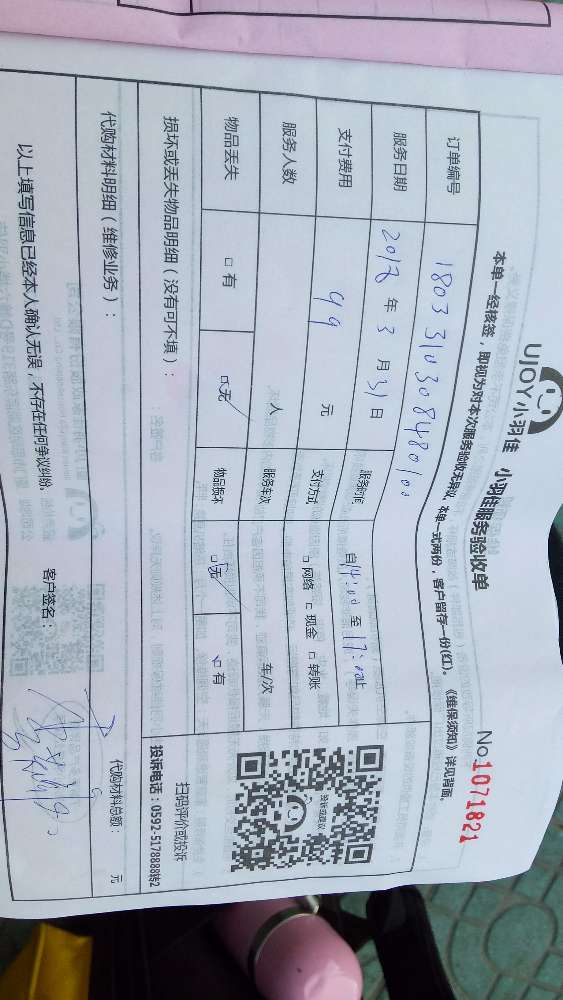 UJOY小羽佳 小羽佳服务验收单
No.1071821
本单一经核签，即视为对本次服务验收无异议，本单一式两份，客户留存一份(红)。《维保须知》详见背面。
订单编号 1803310308480100
服务日期 2018年3月31日 服务时间 自14:00至17:00止
支付费用 99 元 支付方式 □网络 □现金 □转账
服务人数 人 服务车次 车/次
物品丢失 □有 □无 物品损坏 □无 □有
扫码评价或投诉
投诉电话：0592-5178888转2
损坏或丢失物品明细（没有可不填）：
代购材料明细（维修业务）：
代购材料总额： 元
以上填写信息已经本人确认无误，不存在任何争议纠纷。 客户签名：